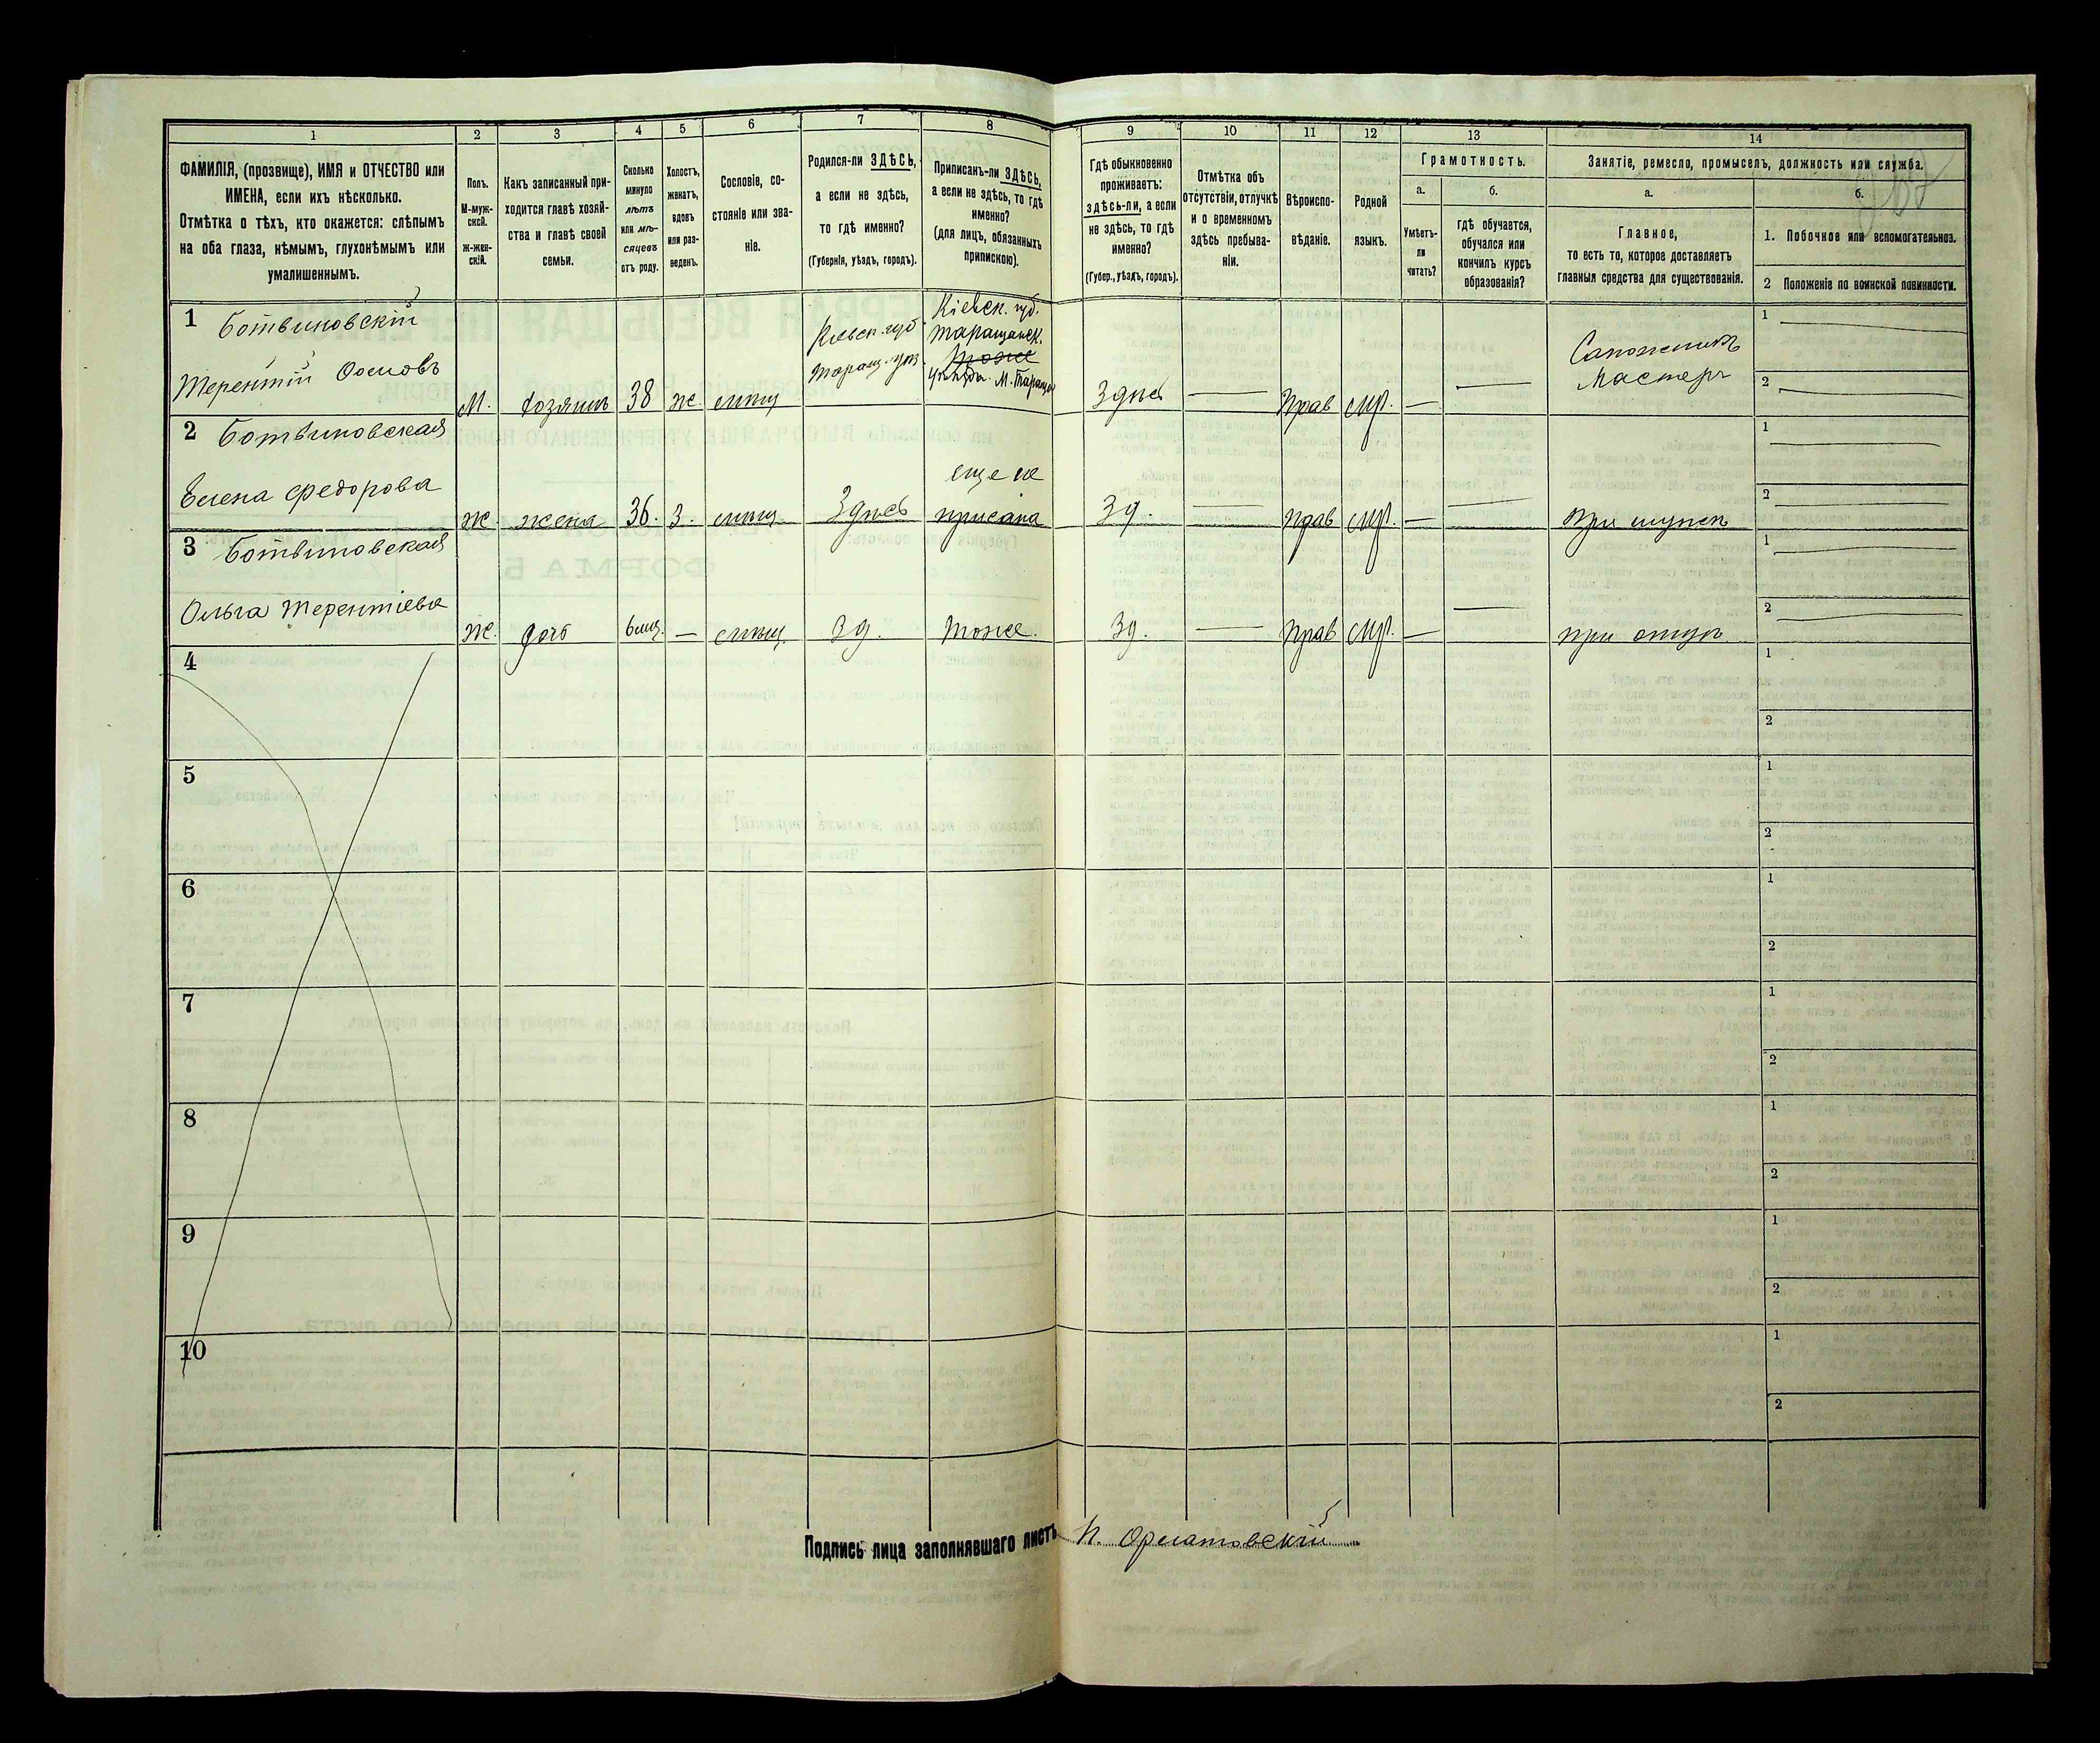 1 2 3 4 5 6 7 8 9 10 11 12 13 14
ФАМИЛІЯ, (прозвище), ИМЯ и ОТЧЕСТВО или
ИМЕНА, если ихъ нѣсколько.
Отмѣтка о тѣхъ, кто окажется: слѣпымъ
на оба глаза, нѣмымъ, глухонѣмымъ или
умалишеннымъ.
Полъ.
М-муж-
ской.
Ж-жен-
скій.
Какъ записанный при-
ходится главѣ хозяй-
ства и главѣ своей
семьи.
Сколько
минуло
лѣтъ
или мѣ-
сяцевъ
отъ роду.
Холостъ,
женатъ,
вдовъ
или раз-
веденъ.
Сословіе, со-
стояніе или зва-
ніе.
Родился-ли ЗДѢСЬ,
а если не здѣсь,
то гдѣ именно?
(Губернія, уѣздъ, городъ).
Приписанъ-ли ЗДѢСЬ,
а если не здѣсь, то гдѣ
именно?
(для лицъ, обязанныхъ
припискою).
Гдѣ обыкновенно
проживаетъ:
здѣсь-ли, а если
не здѣсь, то гдѣ
именно?
(Губер., уѣздъ, городъ).
Отмѣтка объ
отсутствіи, отлучкѣ
и о временномъ
здѣсь пребыва-
ніи.
Вѣроиспо-
вѣданіе.
Родной
языкъ.
Грамотность.
а.
Умѣетъ-
ли
читать?
б.
гдѣ обучается,
обучался или
кончилъ курсъ
образованія?
Занятіе, ремесло, промыселъ, должность или служба.
а.
Главное,
то есть то, которое доставляетъ
главныя средства для существованія.
б.
1. Побочное или вспомогательное.
2 Положеніе по воинской повинности.
1 Ботвиновскій
Терентій
М. Хозяинъ 38 Ж.
Кіевск. губ
Таращ. уѣз.
Кіевск. губ.
Таращанск.
Тоже
Здѣсь — Прав — —
Сапожникъ
Мастеръ
1
2
2 Ботвиновская
Елена Федорова
Ж. жена 36. З. Здѣсь
еще не
Зд. — Прав — —
1
2
3 Ботвиновская
Ольга Терентіева
Ж. дочь — Зд. Тоже.
Зд. — Прав — —
при отцѣ
1
2
4 1
2
5 1
2
6 1
2
7 1
2
8 1
2
9 1
2
10 1
2
Подпись лица заполнявшаго листъ